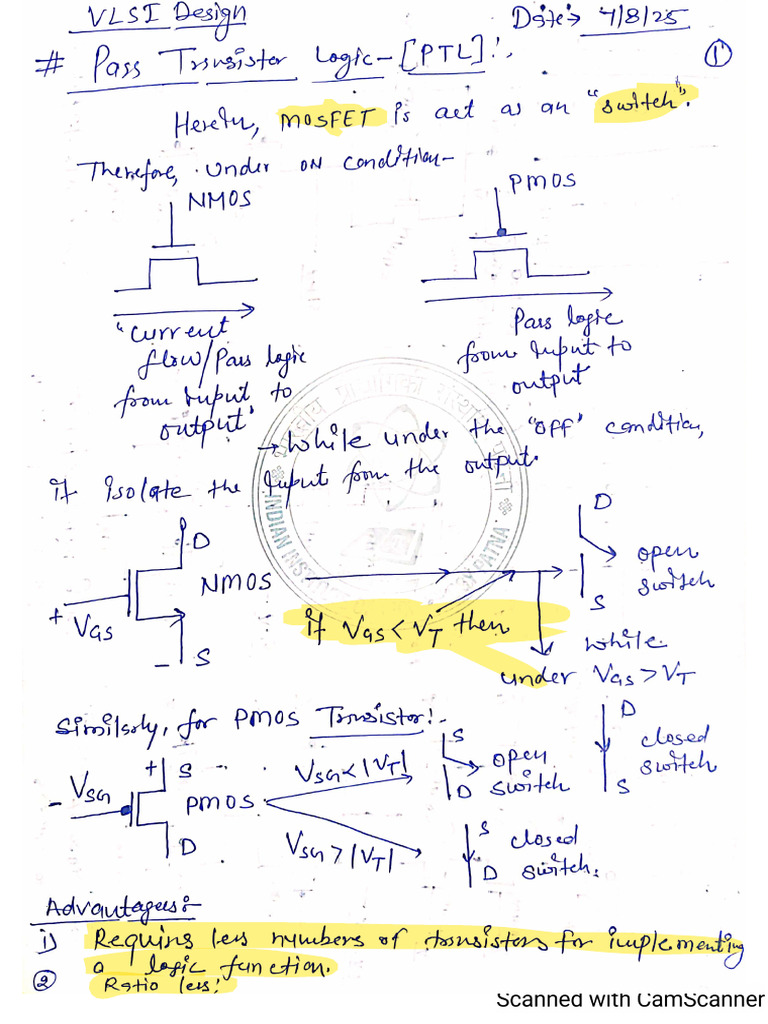 VLSI Design
Date:- 7/8/25
# Pass Transistor Logic-[PTL]!.
①
Herein, MOSFET is act as an "switch".
Therefore, under ON condition-
NMOS
PMOS
"current
flow/Pass logic
from Input to
output"
Pass logic
from Input to
output
→ While under the "OFF" condition,
it isolate the Input from the output.
INDIAN INS
PATNA
D
NMOS
+ VGS
- S
if VGS < VT then
D
open
switch
S
while
under VGS > VT
D
closed
switch
S
Similarly, for PMOS Transistor!-
+ S
- VSG
PMOS
D
VSG < |VT|
S
open
switch
D
VSG > |VT|
S
closed
switch.
D
Advantages:-
i) Requires less numbers of transistors for implementing
a logic function.
② Ratio less!
Scanned with CamScanner